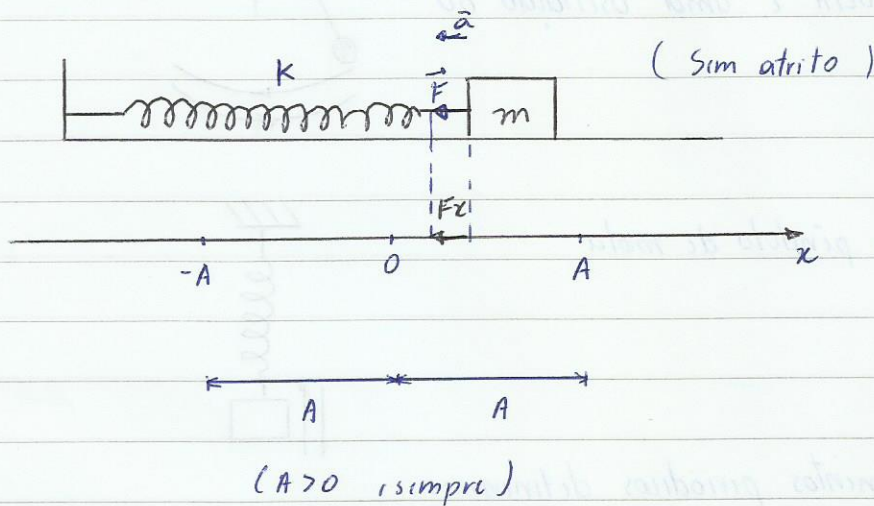 a⃗
K
F⃗
( Sem atrito )
m
Fx
-A 0 A x
A A
(A>0 , sempre)